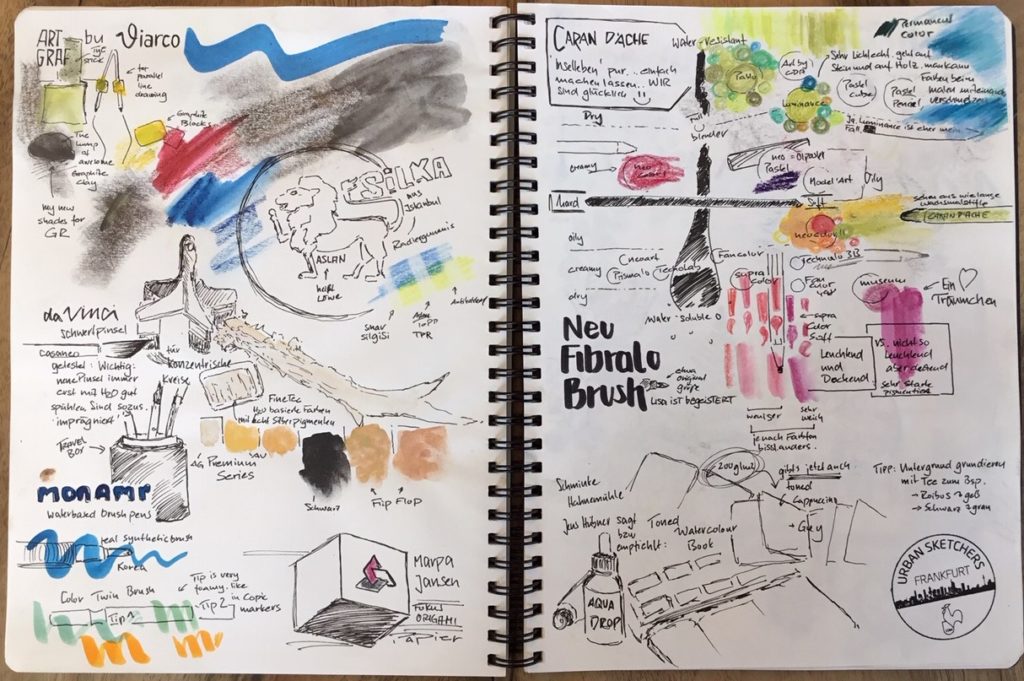 ART
GRAF
by Viarco
for
parallel
line
drawing
Graphite
Blocks
The
lump of
awesome
Graphite
Clay
my new
shades for
GR
SILKA
aus
Istanbul
Radiergummis
ASLAN
heißt
Löwe
sınav
silgisi
TPR
da Vinci
Schwertpinsel
für
konzentrische
Kreise
Casaneo
getestet: Wichtig:
neue Pinsel immer
erst mit H2O gut
spühlen. Sind sozus.
'imprägniert'
Travel
Box
FineTec
H2O basierte Farben
mit echt Silberpigmenten
Premium
Series
Schwarz
Flip Flop
MONAMI
Waterbased brush pens
real synthetic brush
Korea
Color Twin Brush
Tip 1
Tip 2
Tip is very
foamy, like
in Copic
markers
Marpa
Jansen
Fokus
ORIGAMI
Papier
CARAN D'ACHE
'Inselleben' pur... einfach
machen lassen.. WIR
sind glücklich
Water-resistant
Permanent
color
Pablo
Luminance
Sehr lichtecht, geht auf
Stein und auf Holz. man kann
Pastel
cube
Pastel
Pencil
Farben beim
malen miteinander
verschmelzen
Luminance ist eher
Full
blender
Dry
creamy
neo
Pastel
= Ölpastel
Model'Art
Oily
hard
Soft
schon aus wie lange
CARAN D'ACHE
neocolor II
oily
creamy
dry
Neoart
Prismalo
Technalo
Fancolor
supra
color
Technalo 3B
museum
Ein
Träumchen
Water-Soluble
supra
color
Soft
Leuchtend
und
Deckend
vs. nicht so
Leuchtend
aber deckend
sehr stark
pigmentiert
Neu
Fibralo
Brush
etwa
original
größe
Lisa ist begeistert
weniger
sehr
weich
je nach Farbton
bissl anders.
Schminke
Hahnemühle
Jens Hübner sagt
bzw
empfiehlt:
Toned
Watercolour
Book
200g/m2
gibt's jetzt auch
toned
Cappuccino
Grey
Tipp: Untergrund grundieren
mit Tee zum Bsp.
→ Roibus
→ Schwarz
AQUA
DROP
URBAN SKETCHERS
FRANKFURT